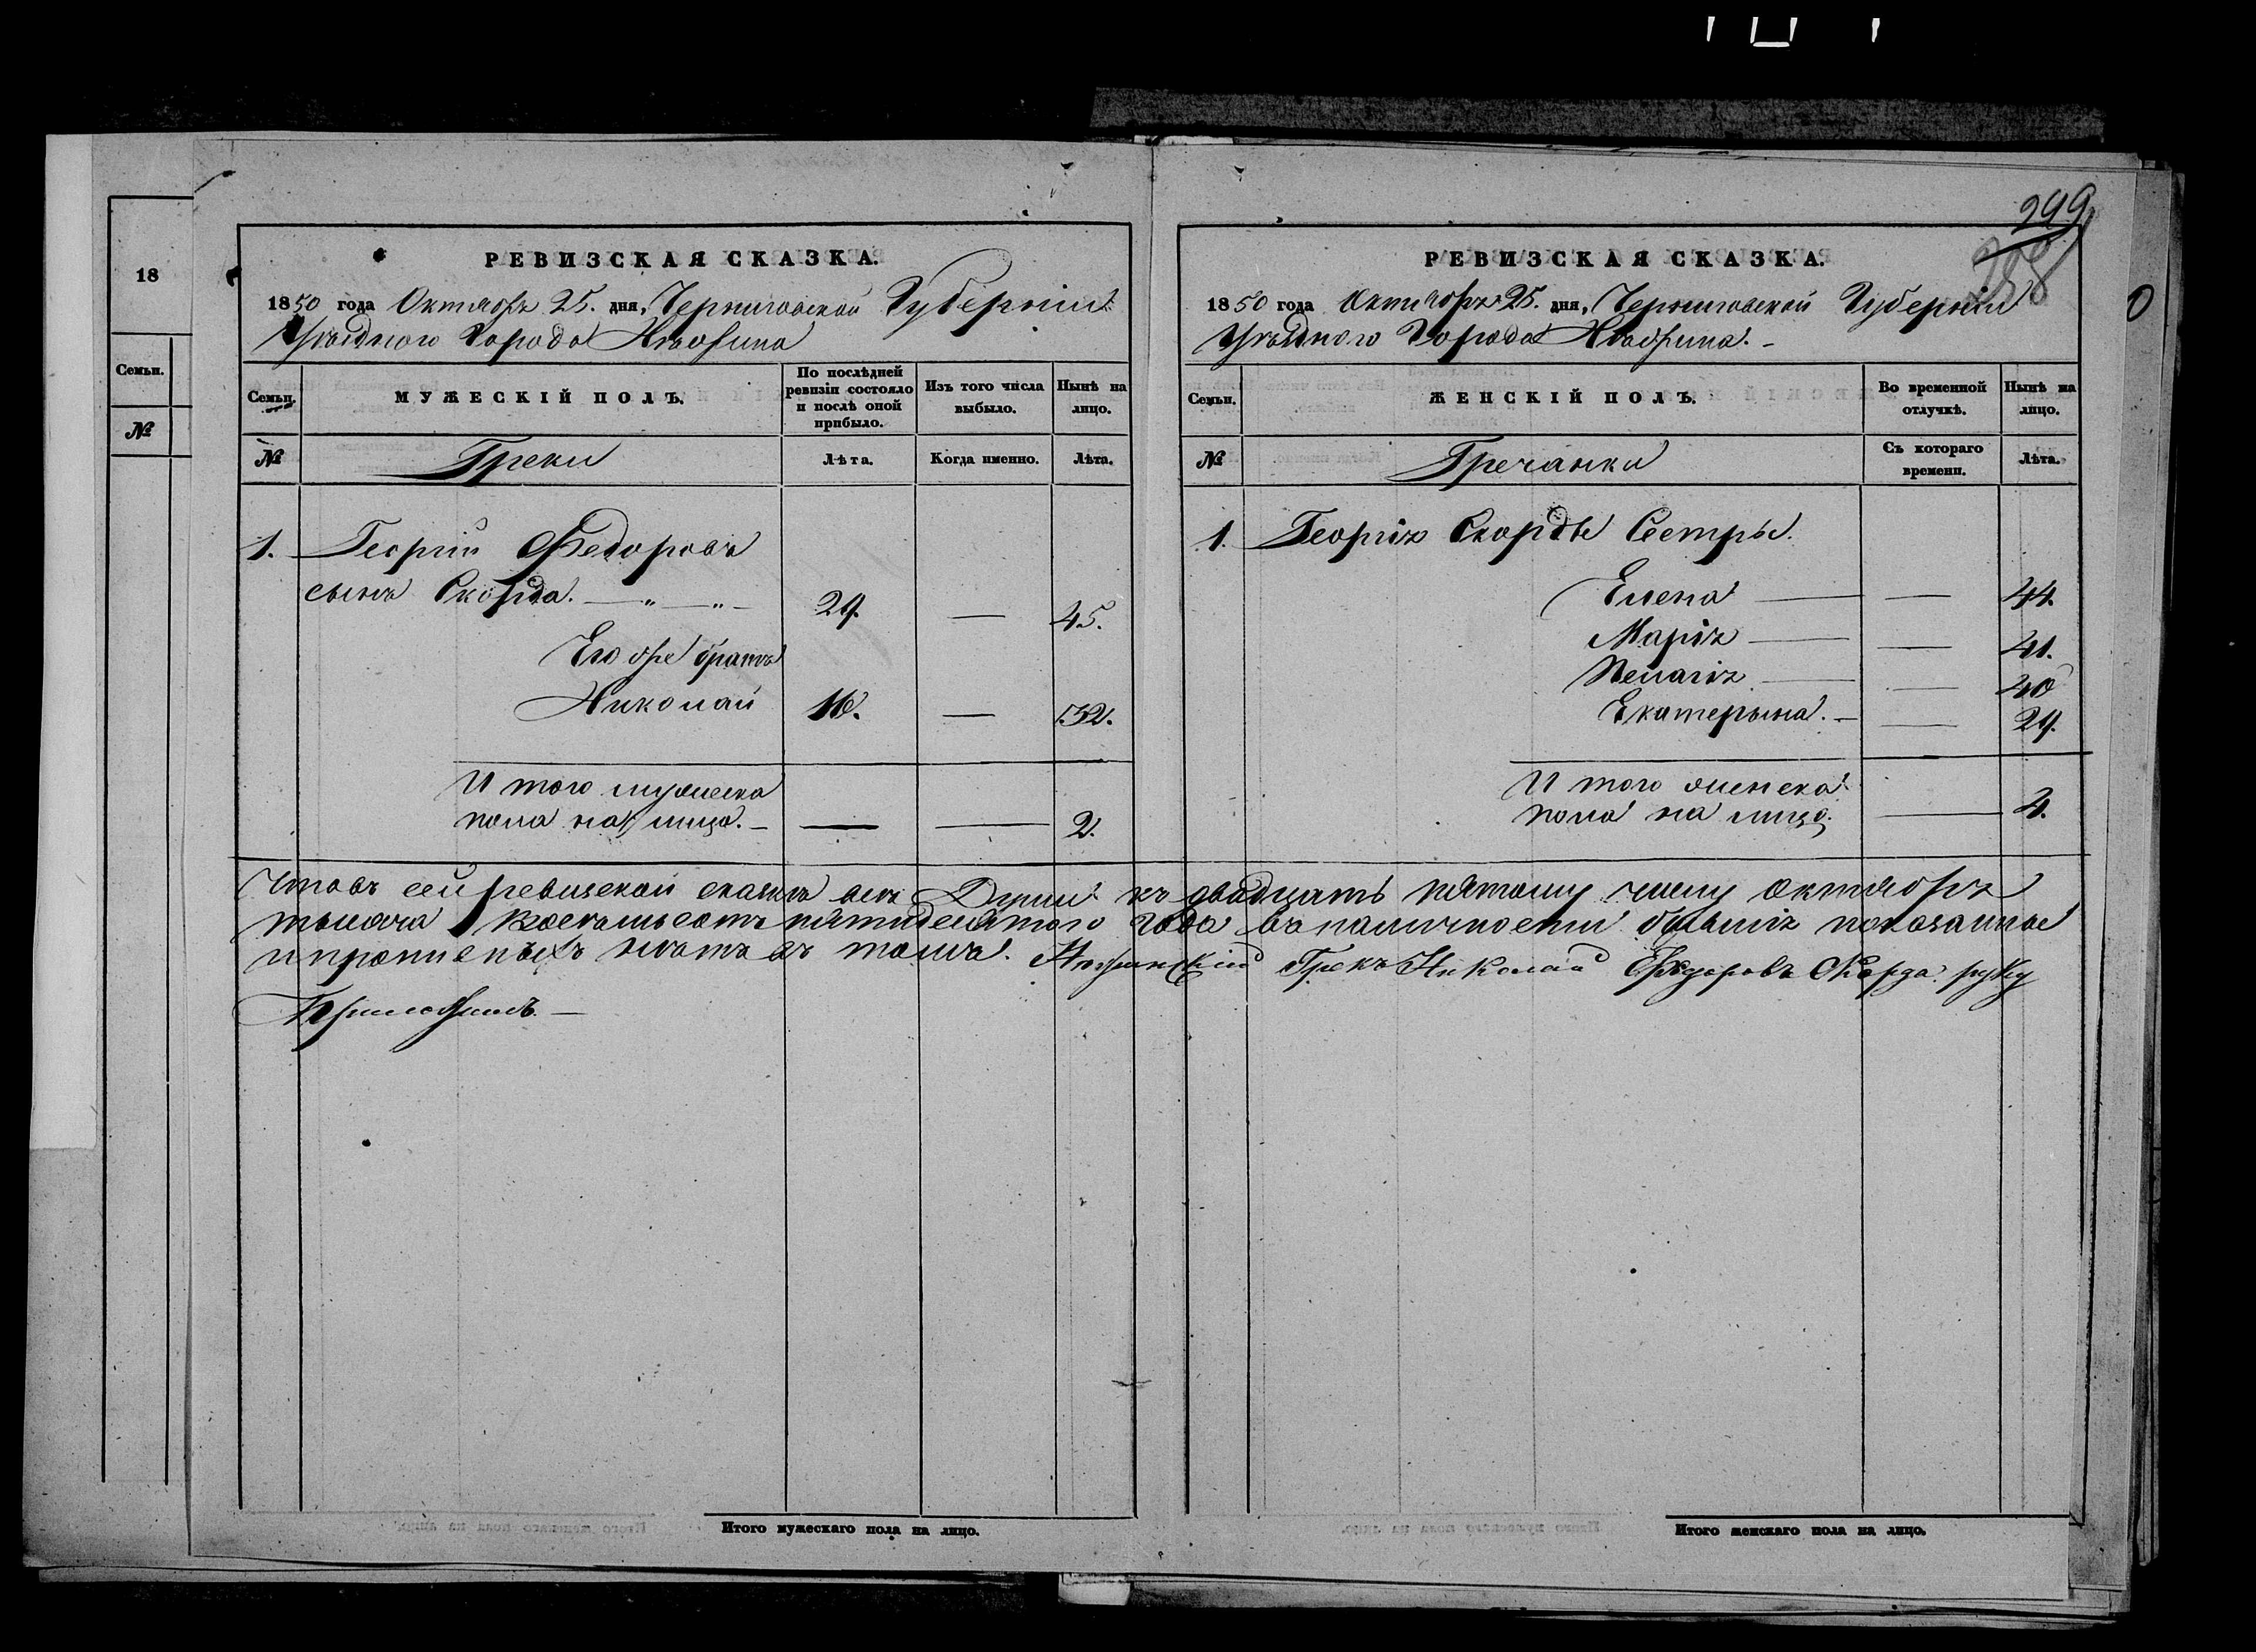 299
258
18
Семьи.
№
РЕВИЗСКАЯ СКАЗКА.
1850 года Октября 25. дня, Черниговской Губерніи
Уѣзднаго Города Нѣжина
Семьи. МУЖЕСКІЙ ПОЛЪ. По послѣдней ревизіи состояло и послѣ оной прибыло. Изъ того числа выбыло. Нынѣ на лицо.
№ Греки Лѣта. Когда именно. Лѣта.
1. Георгій Федоровъ
сынъ Скорда. — „ — „ — 29. — 45.
Его же братъ
Николай 16. — 32.
И того мужеска
пола на лицо. — — — 2.
РЕВИЗСКАЯ СКАЗКА.
1850 года Октября 25. дня, Черниговской Губерніи
Уѣзднаго Города Нѣжина. –
Семьи. ЖЕНСКІЙ ПОЛЪ. Во временной отлучкѣ. Нынѣ на лицо.
№ Гречанки Съ котораго времени. Лѣта.
1. Георгія Скорды Сестры.
Елена — — 44.
Марія — — 41.
Пелагія — — 40
Екатерына. — — 29.
И того женска
пола на лицо. — 4.
Что въ сей ревизской сказкѣ всѣ Души къ двадцать пятому числу октября
тысяча восемьсотъ пятидесятого года въ наличности бывшія показанные
и прописныхъ нѣтъ въ томъ. Нѣжинскій Грекъ Николай Федоровъ Скорда руку
Приложилъ. —
Итого мужескаго пола на лицо.
Итого женскаго пола на лицо.
0